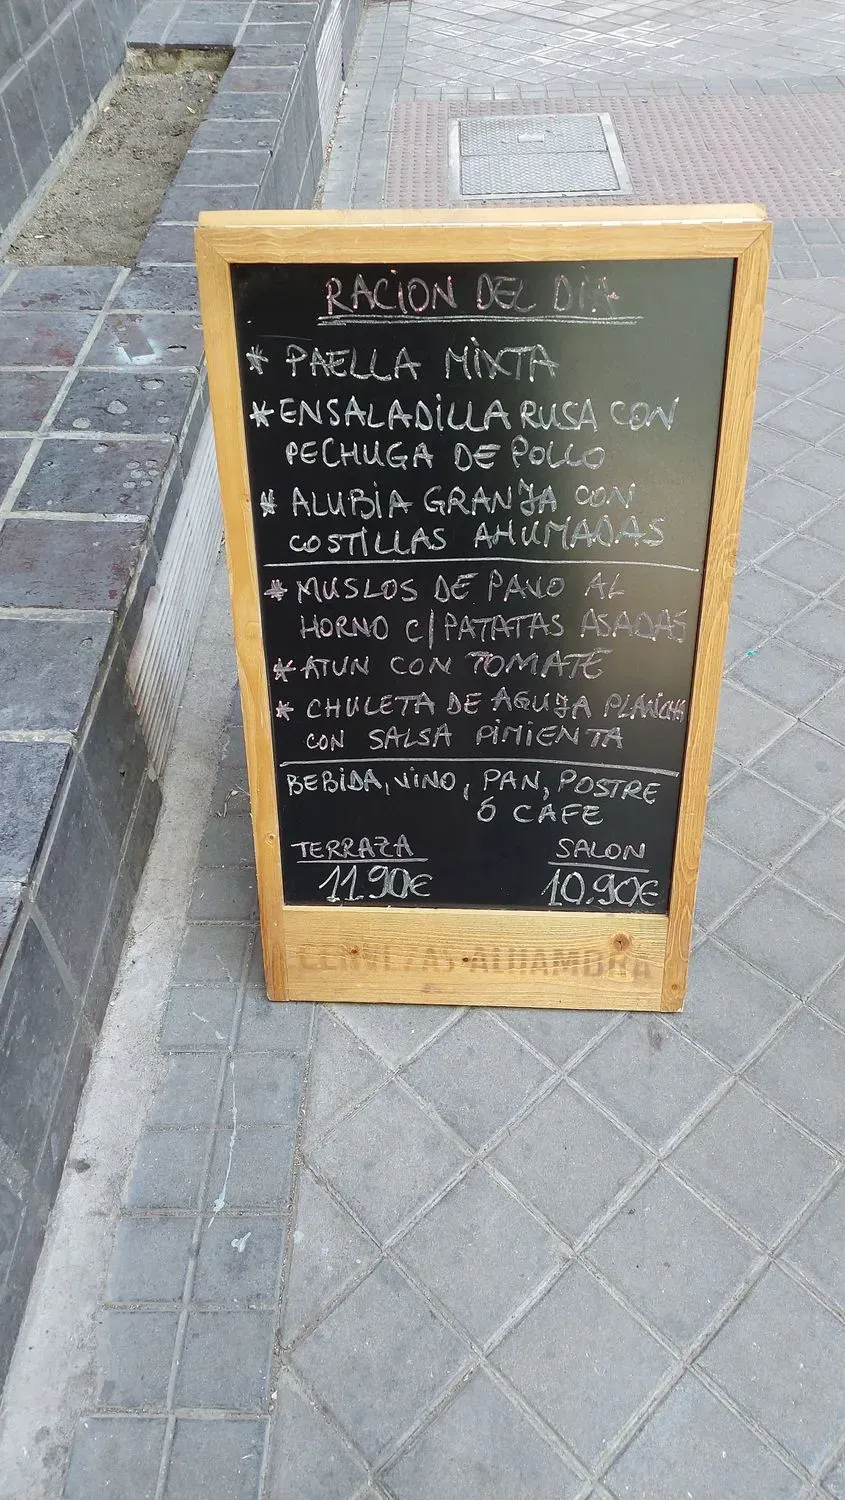 RACION DEL DIA
* PAELLA MIXTA
* ENSALADILLA RUSA CON
PECHUGA DE POLLO
* ALUBIA GRANJA CON
COSTILLAS AHUMADAS
* MUSLOS DE PAVO AL
HORNO C/PATATAS ASADAS
* ATUN CON TOMATE
* CHULETA DE AGUJA PLANCHA
CON SALSA PIMIENTA
BEBIDA, VINO, PAN, POSTRE
Ó CAFE
TERRAZA SALON
11.90€ 10.90€
CERVEZAS ALHAMBRA